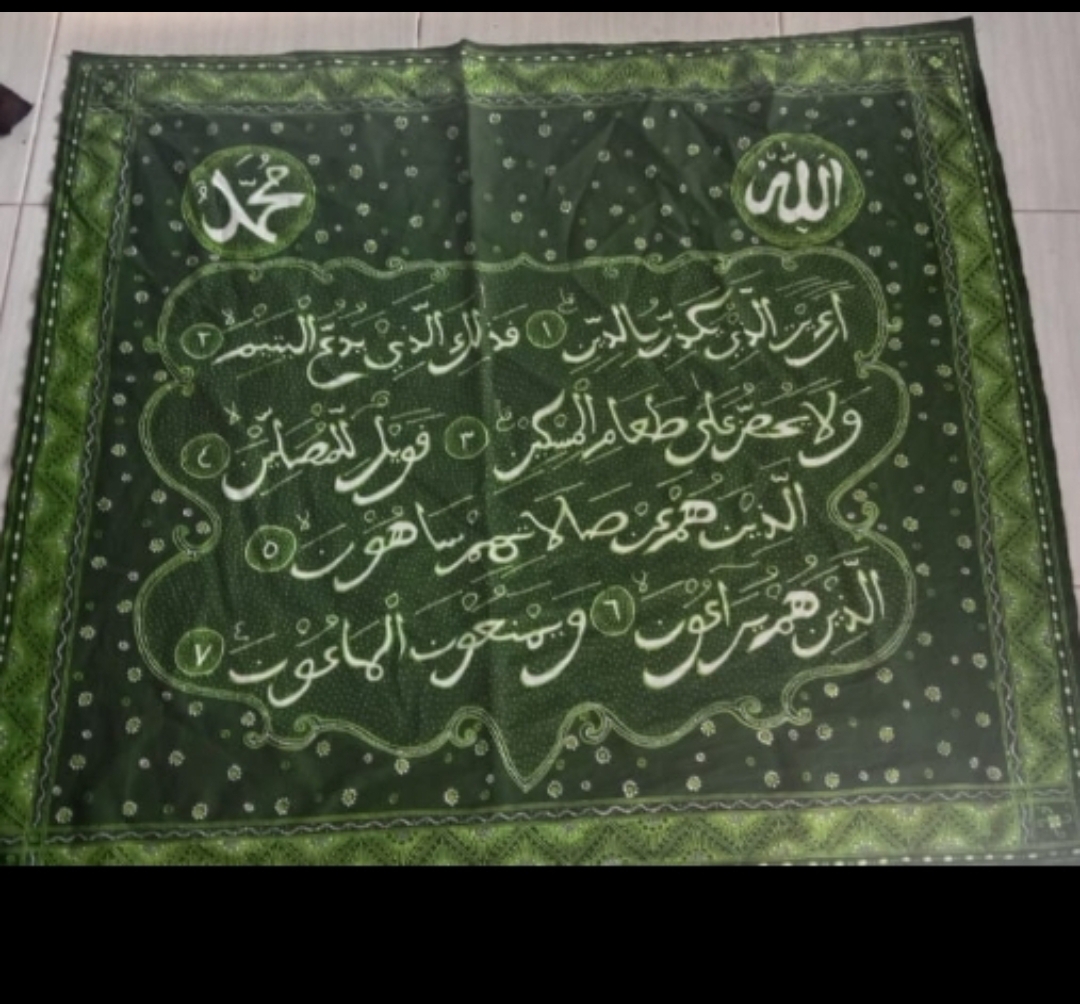 الله محمد
أرءيت الذي يكذب بالدين ١ فذلك الذي يدع اليتيم ٢
ولا يحض على طعام المسكين ٣ فويل للمصلين ٤
الذين هم عن صلاتهم ساهون ٥
الذين هم يراءون ٦ ويمنعون الماعون ٧